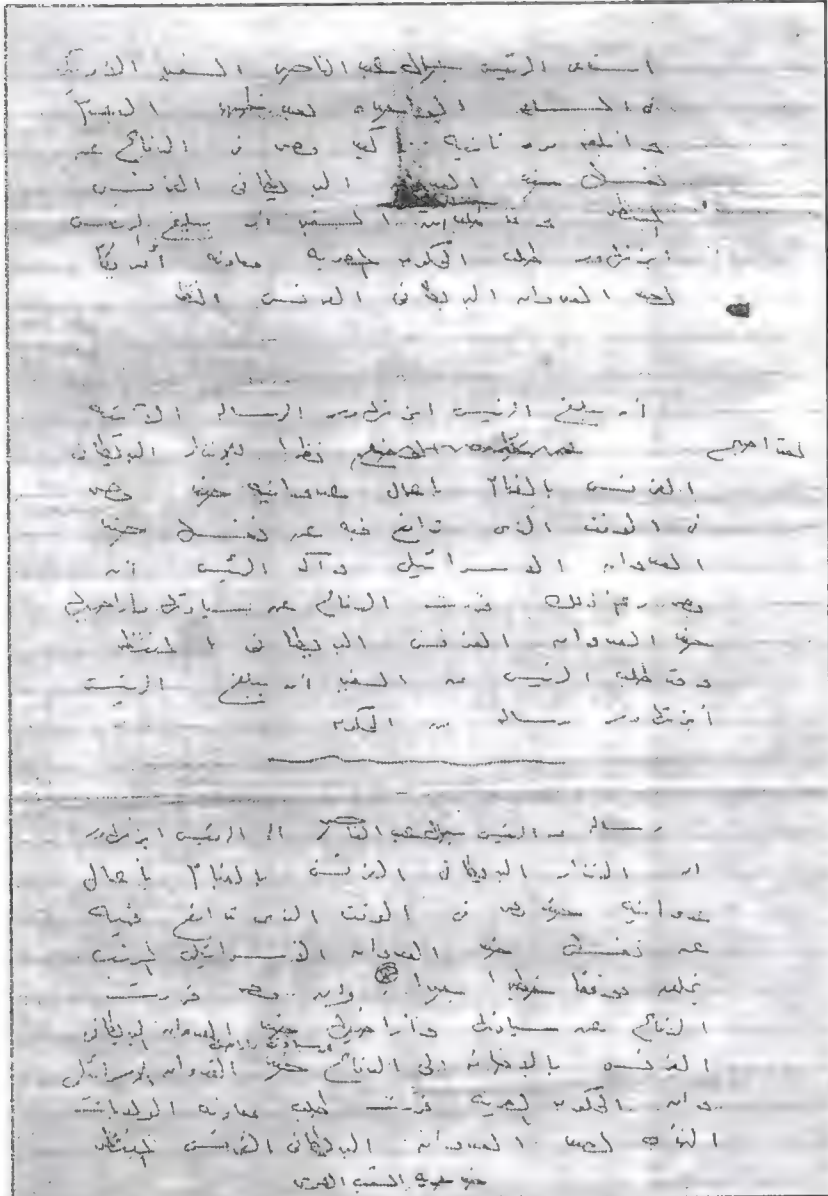 استدعى الرئيس جمال عبد الناصر السفير الأمريكي
في الساعة
مرة ثانية وأكد مصر في الدفاع عن
نفسها ضد العدوان البريطاني الفرنسي
المنتظر وقد طلب من السفير أن يبلغ الرئيس
ايزنهاور طلب الحكومة المصرية معاونة أمريكا
لصد العدوان البريطاني الفرنسي المنتظر
أن يبلغ الرئيس ايزنهاور الرسالة الآتية
نظرا للإنذار البريطاني
الفرنسي بالقيام بأعمال عدوانية ضد مصر
في الوقت الذي تدافع فيه عن نفسها ضد
العدوان الاسرائيلي وأكد الرئيس أن
مصر رغم ذلك قررت الدفاع عن سيادتها وأراضيها
ضد العدوان الفرنسي البريطاني المنتظر
وقد طلب الرئيس من السفير أن يبلغ الرئيس
أيزنهاور رسالة من الحكومة
رسالة من الرئيس جمال عبد الناصر الى الرئيس ايزنهاور
ان الانذار البريطاني الفرنسي بالقيام بأعمال
عدوانية ضد مصر في الوقت الذي تدافع فيه
عن نفسها ضد العدوان الاسرائيلي
يخلق موقفا خطيرا جديدا وان مصر قررت
الدفاع عن سيادتها وأراضيها ضد العدوان البريطاني
الفرنسي بالاضافة الى الدفاع ضد العدوان الاسرائيلي
وان الحكومة المصرية قررت طلب معاونة الولايات
المتحدة لصد العدوان البريطاني الفرنسي المنتظر
الشعب المصري